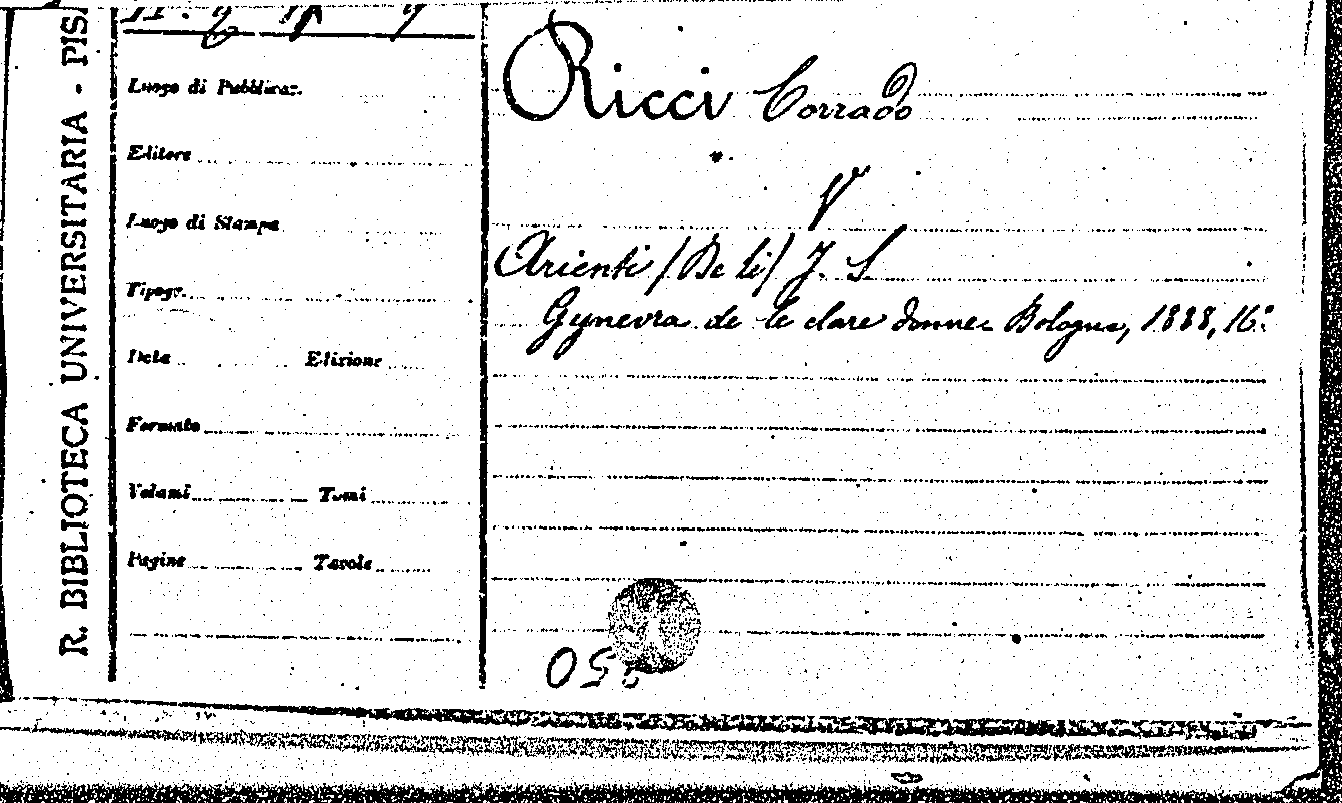 R. BIBLIOTECA UNIVERSITARIA - PIS
Luogo di Pubblicaz.
Editore
Luogo di Stampa
Tipogr.
Data Edizione
Formato
Volumi Tomi
Pagine Tavole
Ricci Corrado
V
Arienti (De li) J. S
Gynevra de le clare donne Bologna, 1888, 16°.